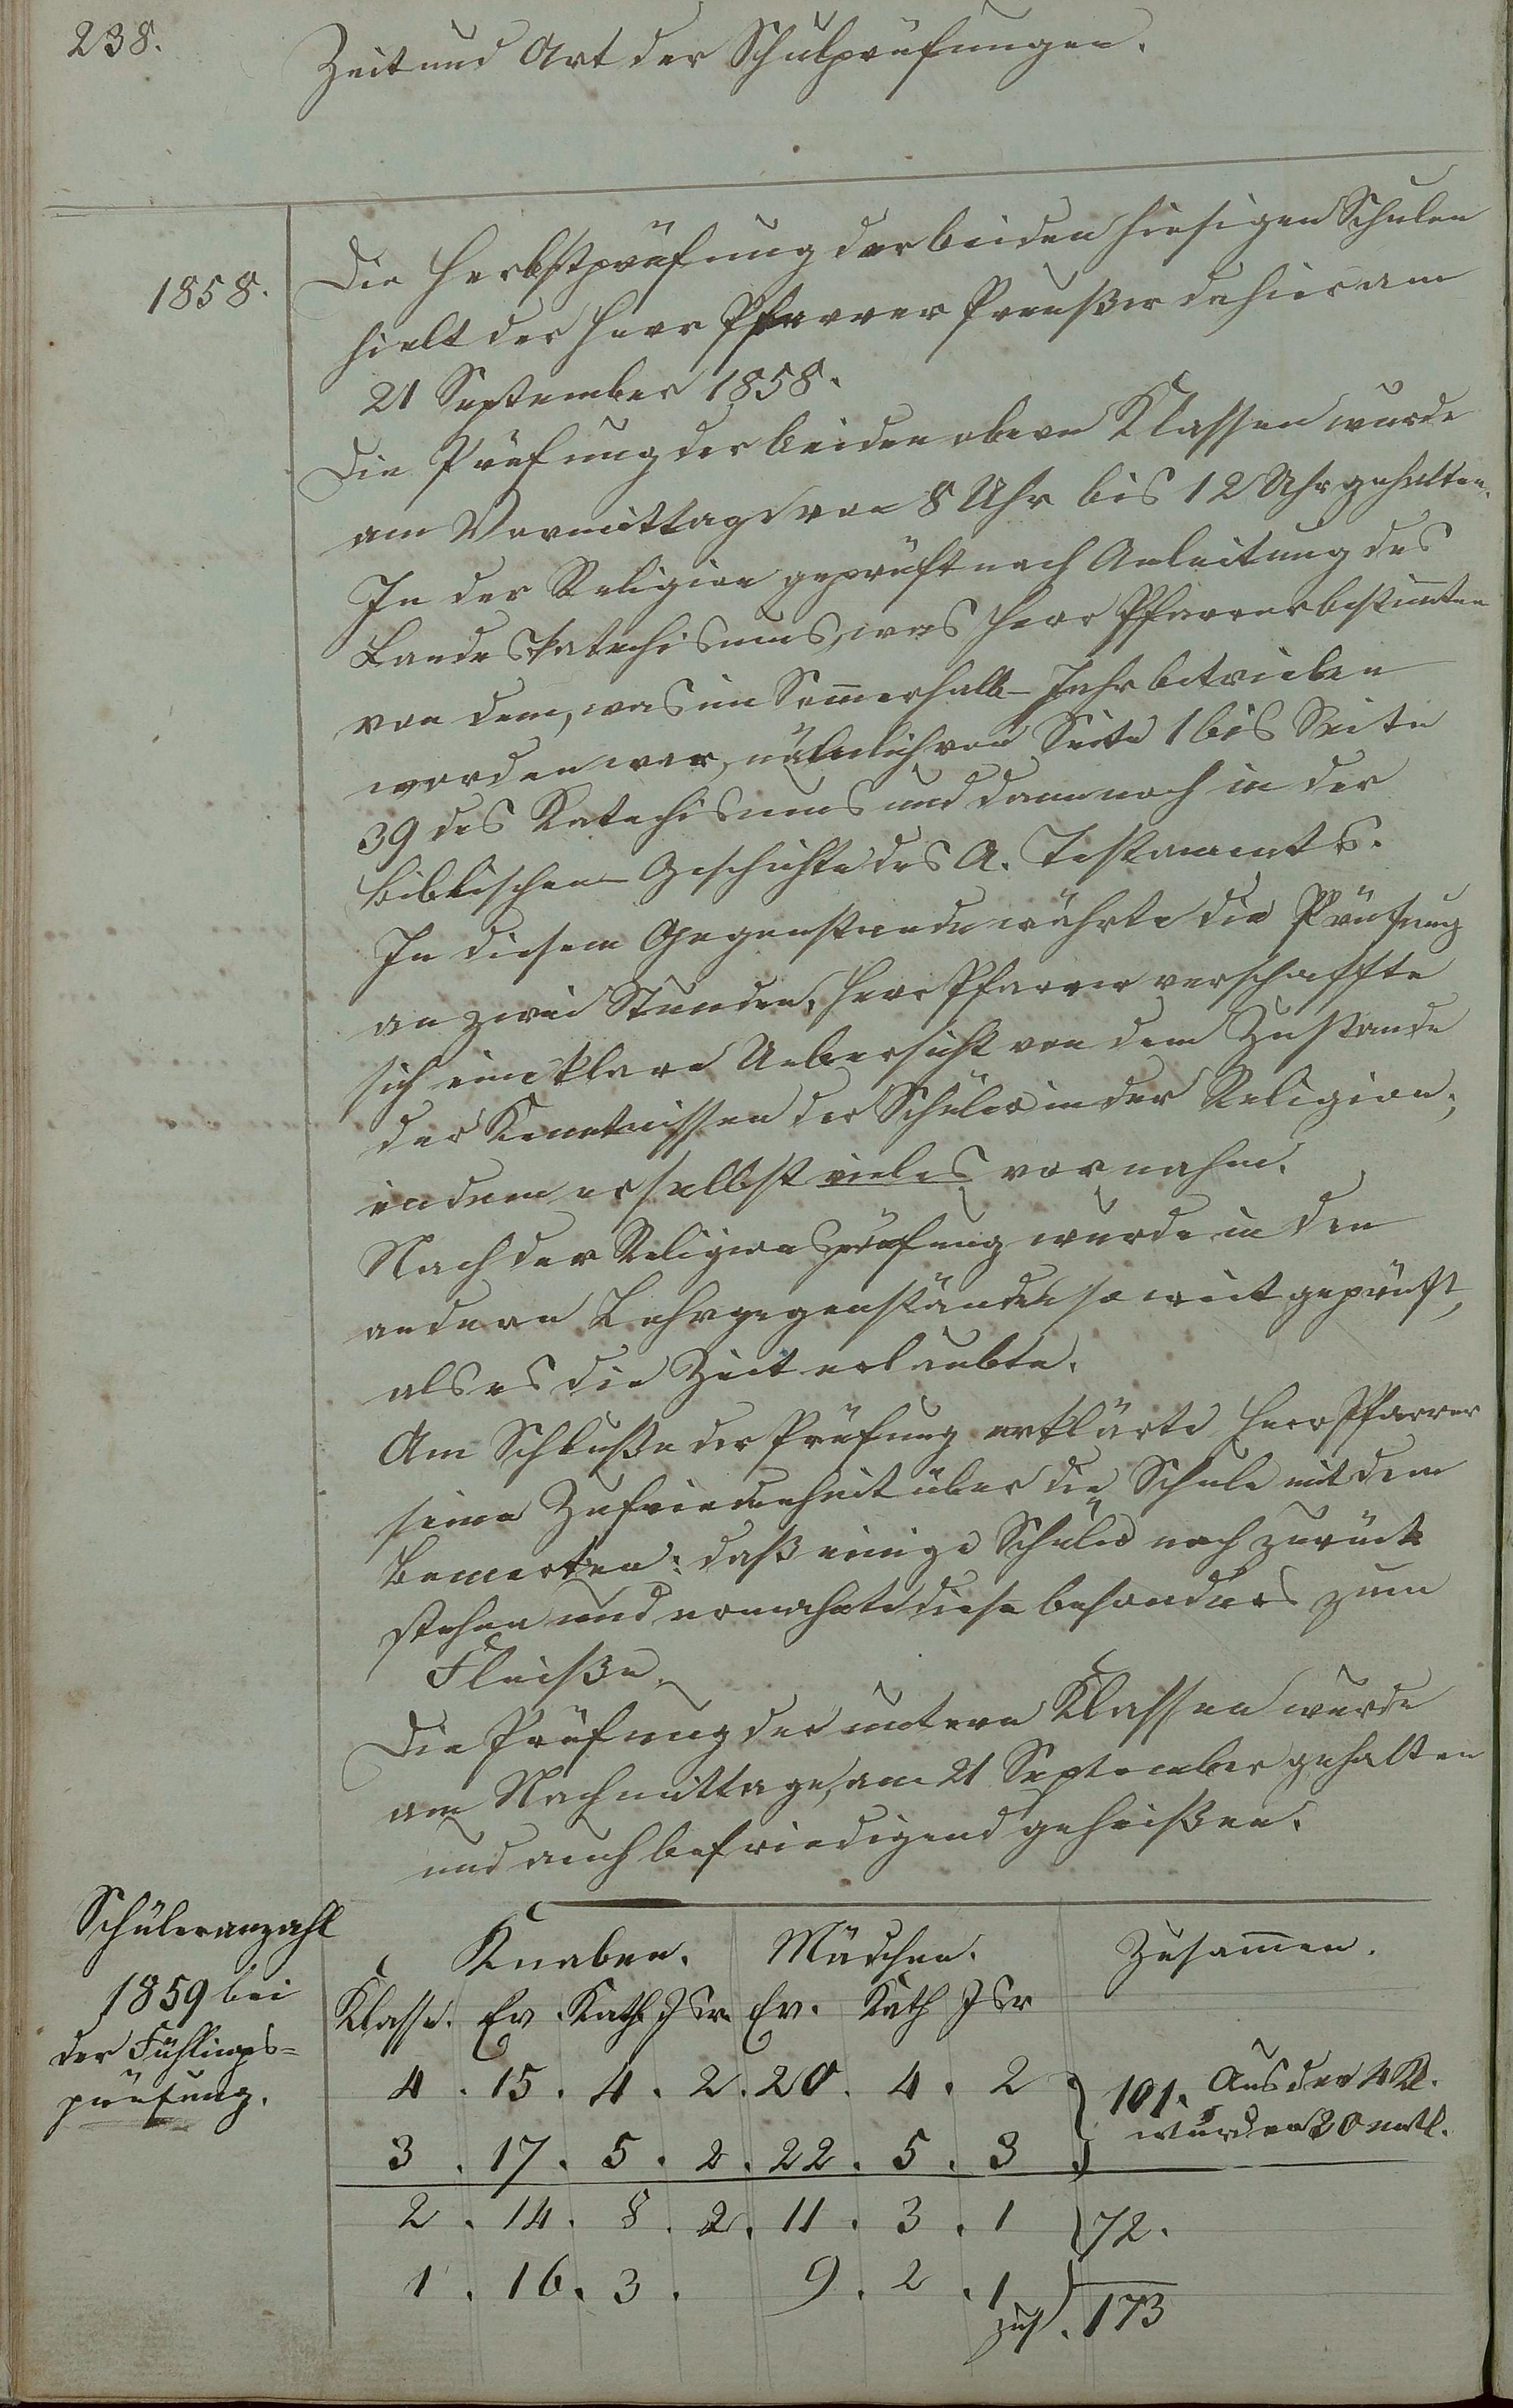 238.
Zeit und Art der Schulprüfungen.
1858.
Die Herbstprüfung der beiden hiesigen Schulen
hielt der Herr Pfarrer Preußer dahier am
21 September 1858.
Die Prüfung der beiden obern Klassen wurde
am Vormittage von 8 Uhr bis 12 Uhr gehalten.
In der Religion geprüft nach Anleitung des
Landeskatechismus, was Herr Pfarrer bestimten
von dem, was im Somerhalb-Jahr betrieben
worden war, nämlich von Seite 1 bis Seite
39 des Katechismus und dann noch in der
biblischen Geschichte des A. Testaments.
In diesem Gegenstande währte die Prüfung
an zwei Stunden. Herr Pfarrer verschaffte
sich eine klare Uebersicht von dem Zustande
der Kenntnissen der Schüler in der Religion,
indem er selbst vieles vornahm.
Nach der Religionsprüfung wurde in den
andern Lehrgegenständen so weit geprüft,
als es die Zeit erlaubte.
Am Schluße der Prüfung erklärte Herr Pfarrer
seine Zufriedenheit über die Schule mit dem
Bemerken: daß einige Schüler noch zurück
stehen und ermahnte diese besonders zum
Fleiße.
Die Prüfung der untern Klassen wurde
am Nachmittage, am 21 September gehalten
und auch befriedigend geheißen.
Schüleranzahl
1859 bei
der Fühlings=
prüfung.
Knaben. Mädchen. Zusamen.
Klasse. Ev. Kath. Isr. Ev. Kath Isr
4 . 15 . 4 . 2 . 20 . 4 . 2 } 101. Aus der 4 Kl.
wurden 20 entl.
3 . 17 . 5 . 2 . 22 . 5 . 3
2 . 14 . 8 . 2 . 11 . 3 . 1 } 72.
1 . 16 . 3 . 9 . 2 . 1
zus. 173